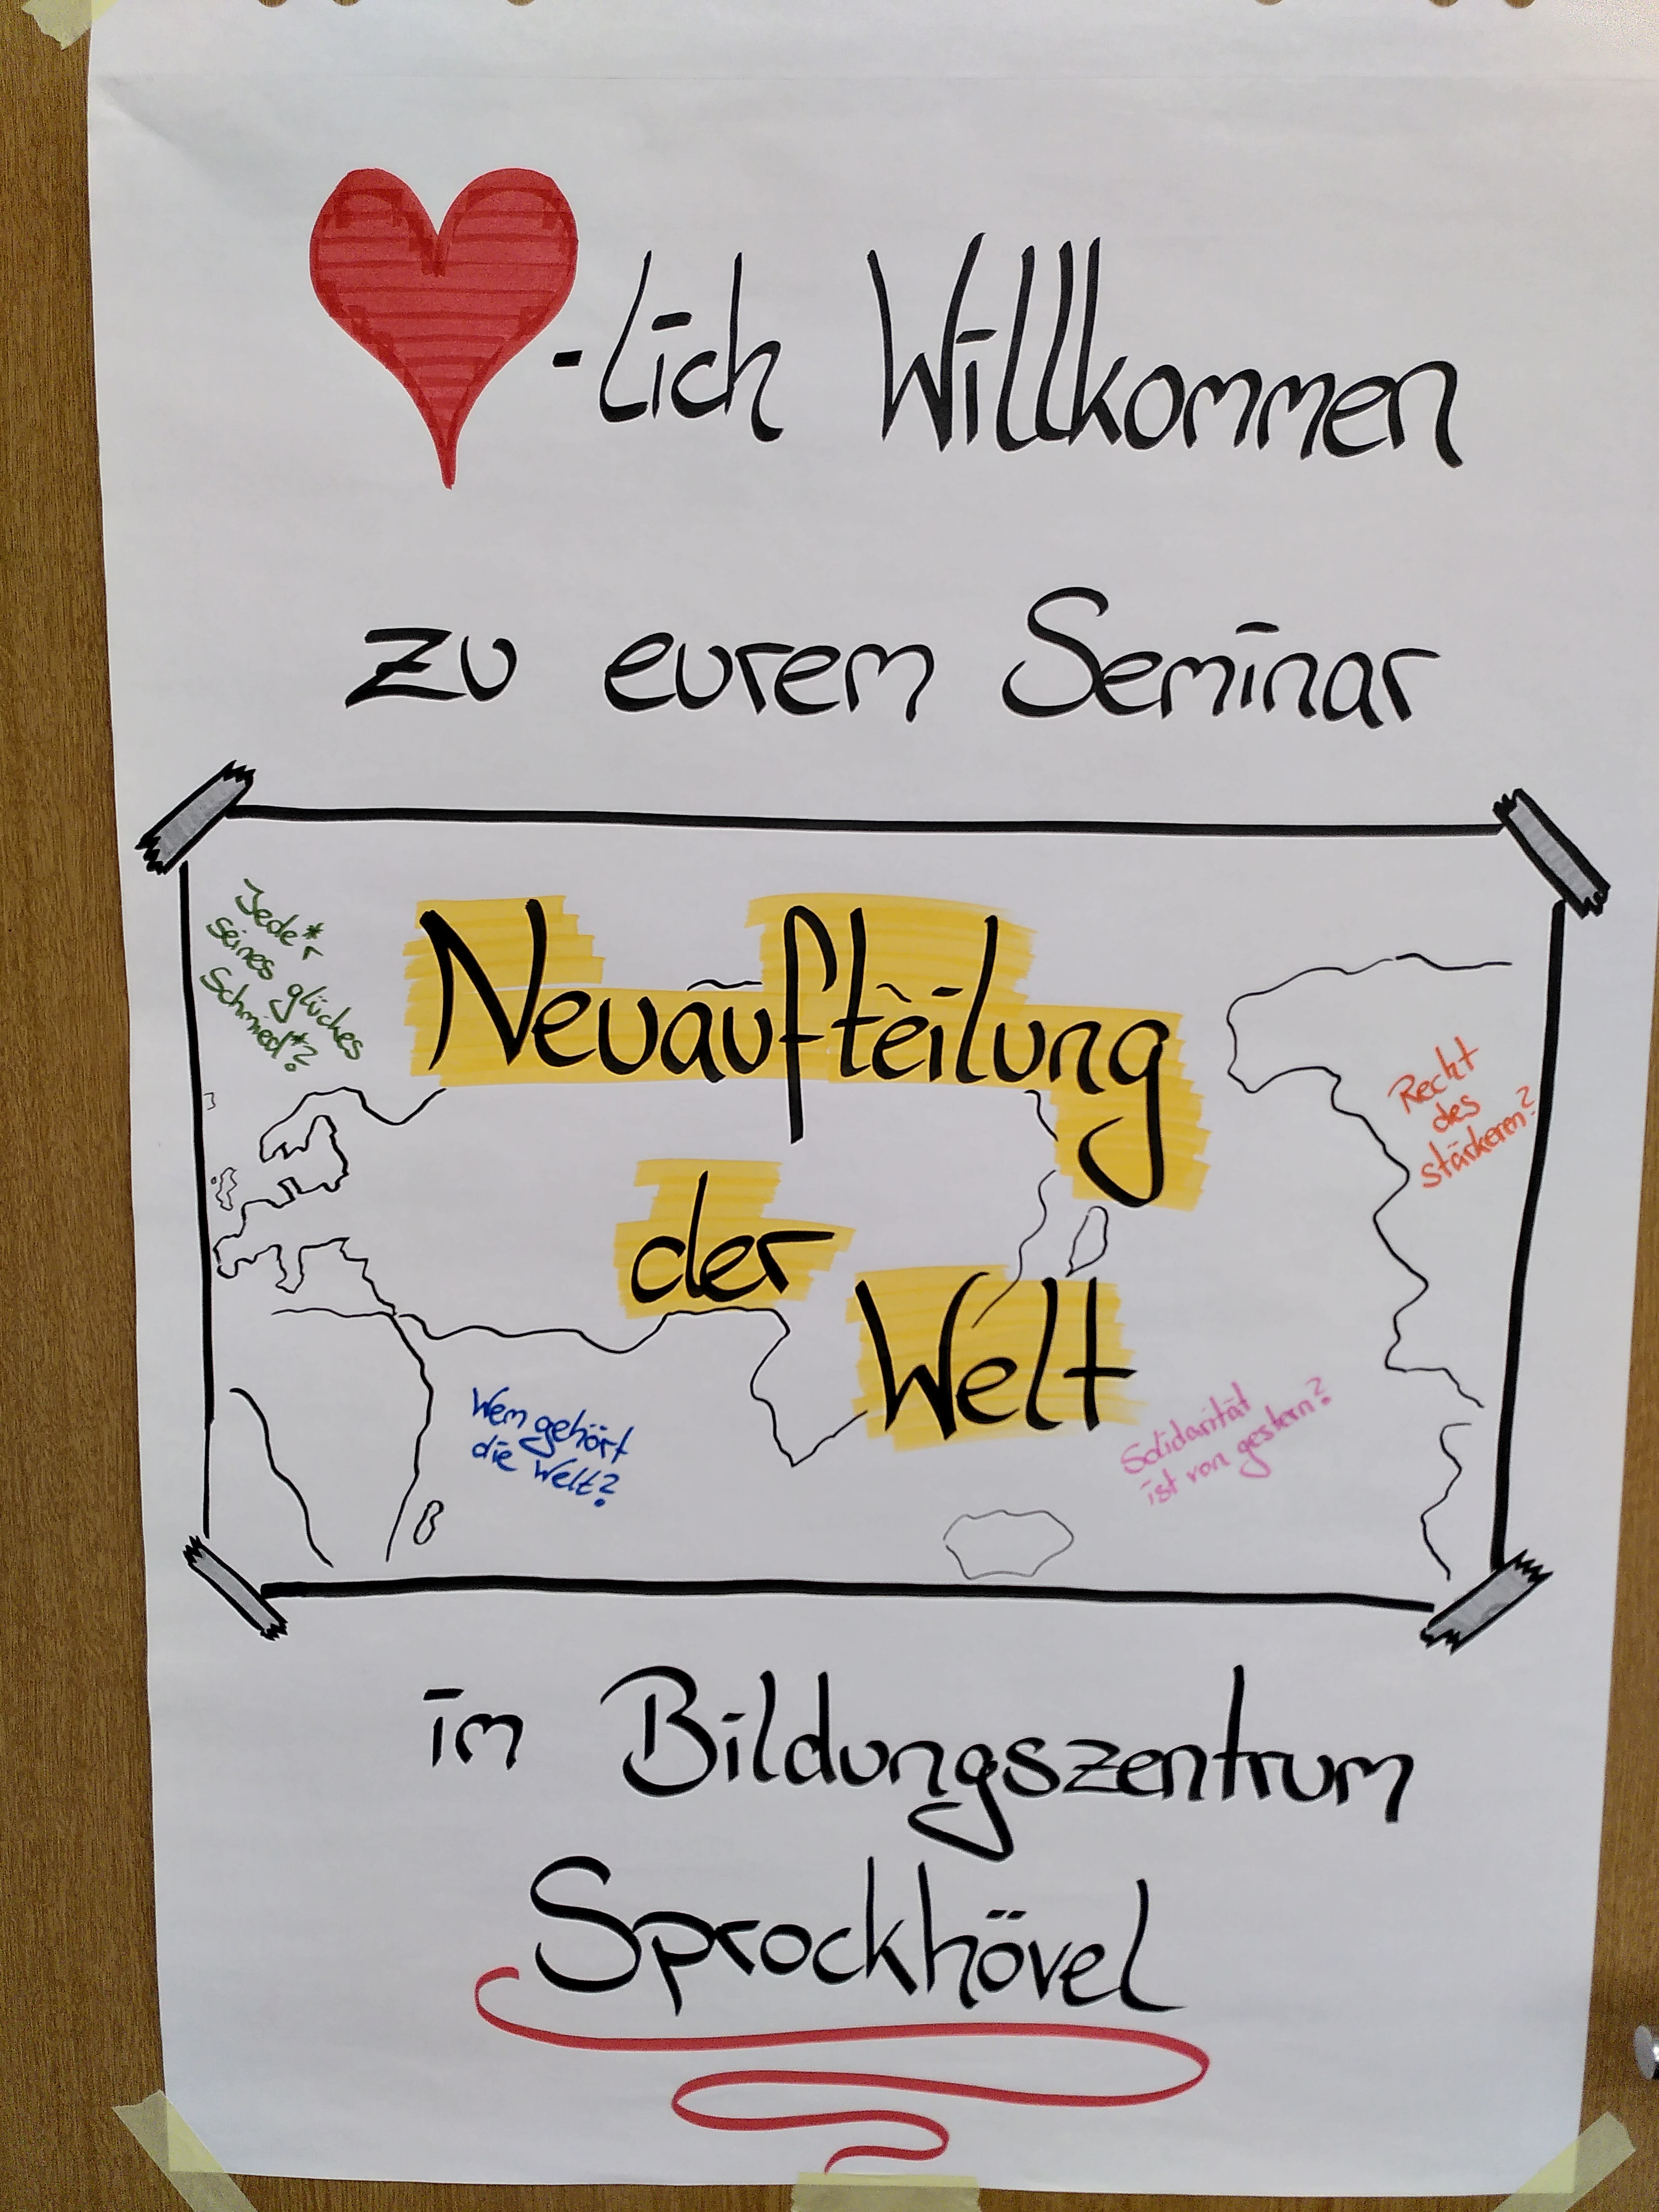 -lich Willkommen
zu eurem Seminar
Jede*r
seines glückes
Schmied*?
Neuaufteilung
der
Welt
Recht
des
stärkeren?
Wem gehört
die Welt?
Solidarität
ist von gestern?
im Bildungszentrum
Sprockhövel